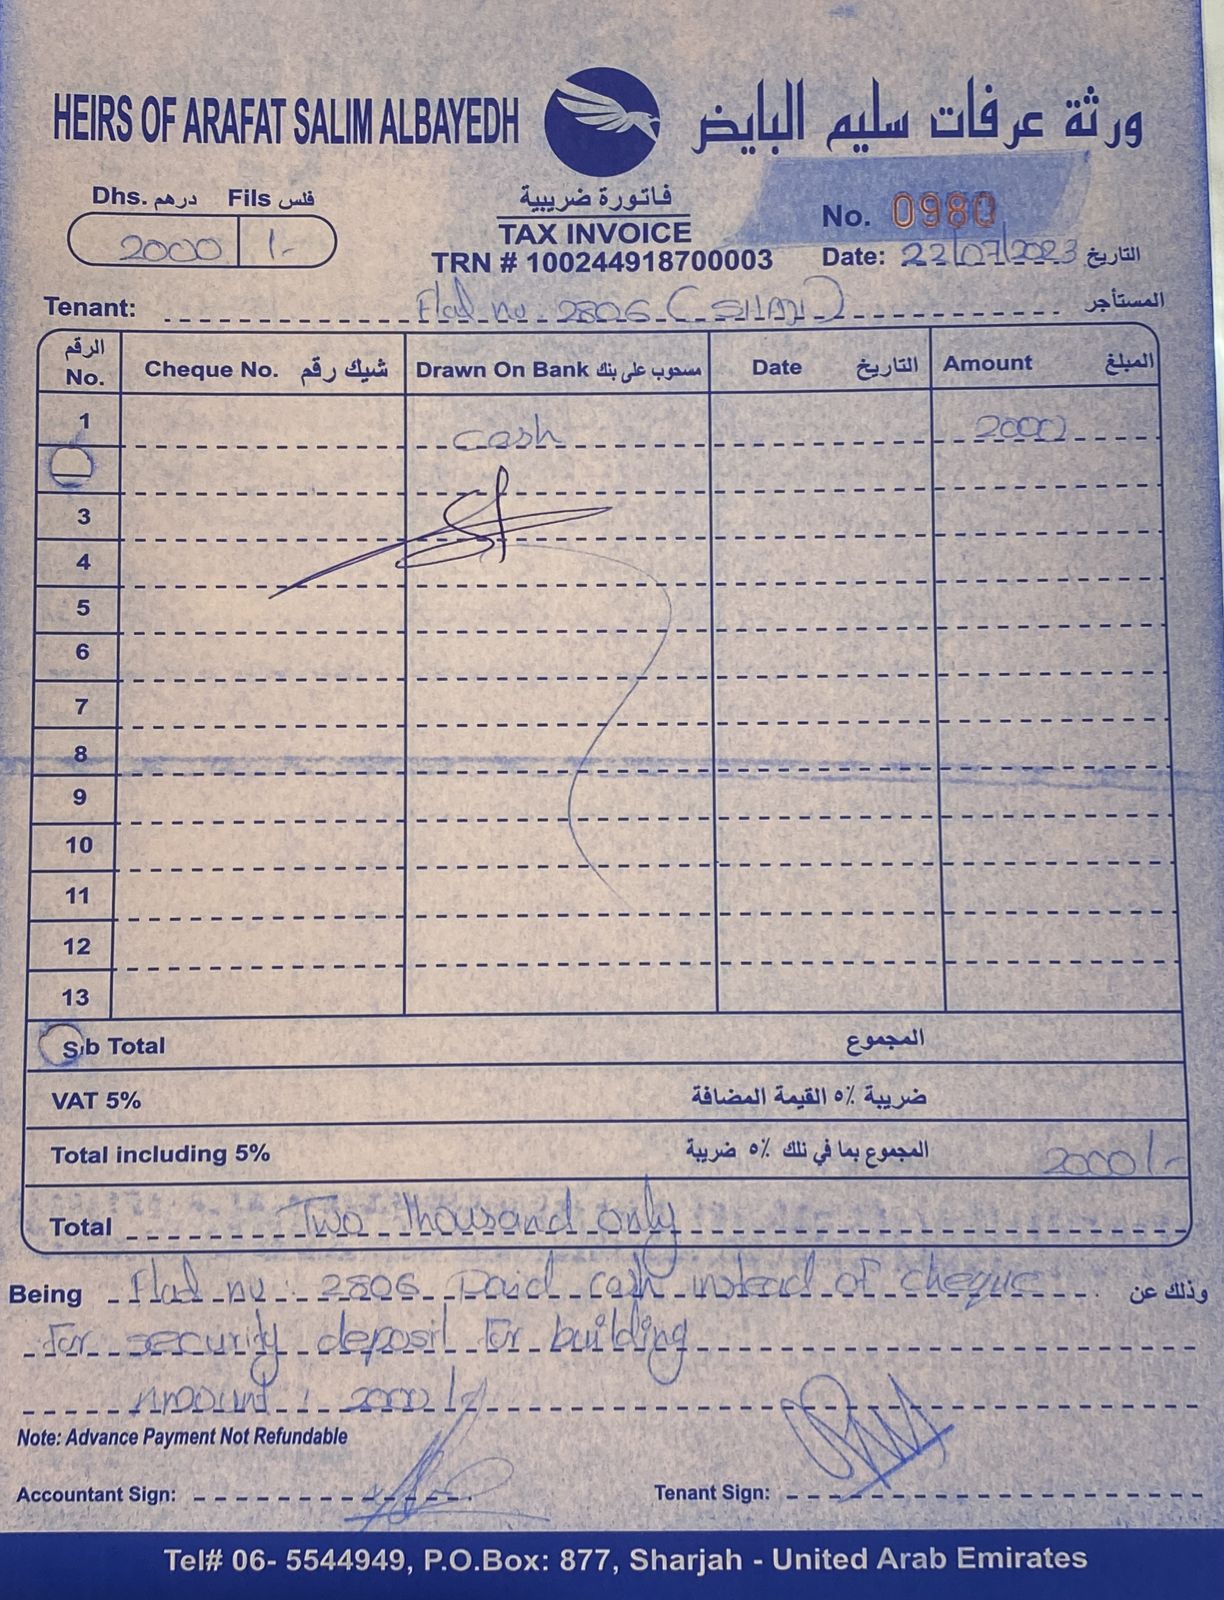 HEIRS OF ARAFAT SALIM ALBAYEDH
ورثة عرفات سليم البايض
Dhs. درهم Fils فلس
2000 /-
فاتورة ضريبية
TAX INVOICE
TRN # 100244918700003
No. 0980
Date: 22/07/2023 التاريخ
Tenant: Flat no 2806 (SHAJI) المستأجر
الرقم No. Cheque No. شيك رقم Drawn On Bank مسحوب على بنك Date التاريخ Amount المبلغ
1 cash 2000
3
4
5
6
7
8
9
10
11
12
13
Sub Total المجموع
VAT 5% ضريبة ٥٪ القيمة المضافة
Total including 5% المجموع بما في ذلك ٥٪ ضريبة 2000/-
Total Two thousand only
Being Flat no: 2806 Paid cash instead of cheque وذلك عن
for security deposit for building
Amount: 2000/-
Note: Advance Payment Not Refundable
Accountant Sign: Tenant Sign:
Tel# 06- 5544949, P.O.Box: 877, Sharjah - United Arab Emirates